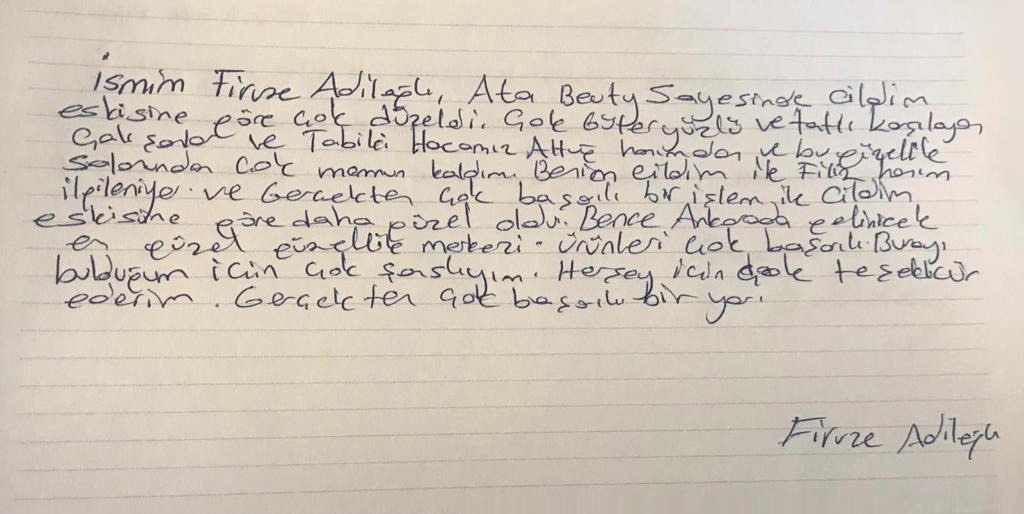 İsmim Firuze Adiloğlu, Ata Beuty Sayesinde cildim
eskisine göre çok düzeldi. Çok güleryüzlü ve tatlı
ve Tabiki Hocamız hanımdan ve bu güzellik
salonundan çok memnun kaldım. Benim cildim ile Filiz hanım
ilgileniyor. ve Gerçekten çok başarılı bir işlem ile Cildim
eskisine göre daha güzel oldu. Bence Ankarada gelinicek
en güzel güzellik merkezi. ürünleri çok başarılı. Burayı
bulduğum için çok şaslıyım. Herşey için çok teşekkür
ederim. Gerçekten çok başarılı bir yer.
Firuze Adiloğlu